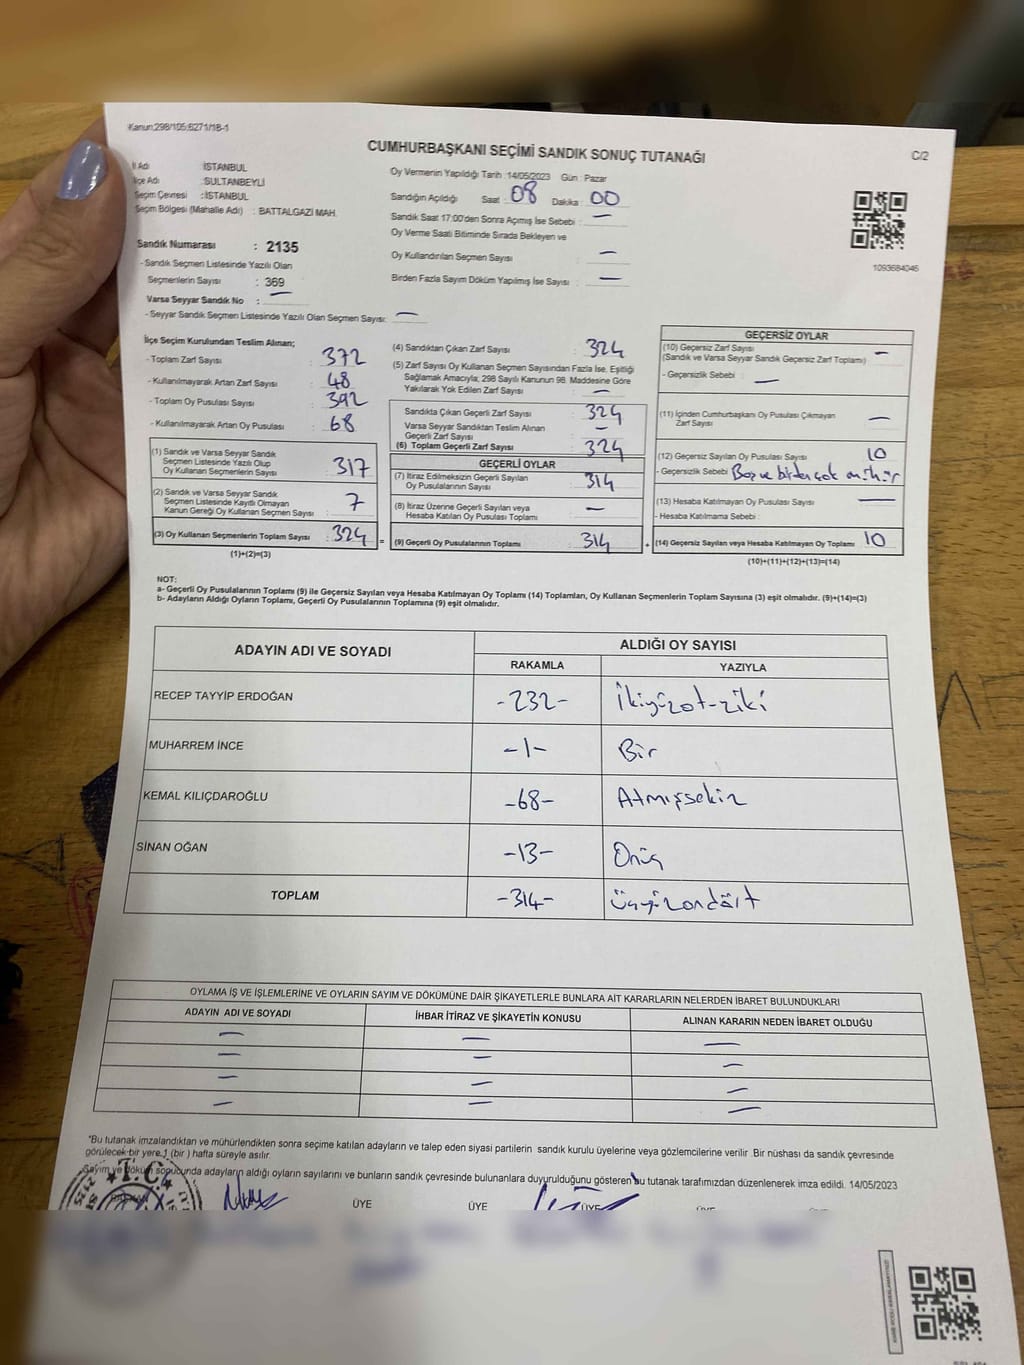 Kanun;298/105;6271/18-1
CUMHURBAŞKANI SEÇİMİ SANDIK SONUÇ TUTANAĞI
C/2
İl Adı : İSTANBUL
İlçe Adı : SULTANBEYLİ
Seçim Çevresi : İSTANBUL
Seçim Bölgesi (Mahalle Adı) : BATTALGAZİ MAH.
Sandık Numarası : 2135
- Sandık Seçmen Listesinde Yazılı Olan
Seçmenlerin Sayısı : 369
Varsa Seyyar Sandık No : —
- Seyyar Sandık Seçmen Listesinde Yazılı Olan Seçmen Sayısı: —
Oy Vermenin Yapıldığı Tarih :14/05/2023 Gün : Pazar
Sandığın Açıldığı Saat : 08 Dakika : 00
Sandık Saat 17:00'den Sonra Açımış İse Sebebi : —
Oy Verme Saati Bitiminde Sırada Bekleyen ve
Oy Kullandırılan Seçmen Sayısı : —
Birden Fazla Sayım Döküm Yapılmış İse Sayısı : —
1093684046
İlçe Seçim Kurulundan Teslim Alınan;
- Toplam Zarf Sayısı : 372
- Kullanılmayarak Artan Zarf Sayısı : 48
- Toplam Oy Pusulası Sayısı : 392
- Kullanılmayarak Artan Oy Pusulası : 68
(1) Sandık ve Varsa Seyyar Sandık
Seçmen Listesinde Yazılı Olup
Oy Kullanan Seçmenlerin Sayısı : 317
(2) Sandık ve Varsa Seyyar Sandık
Seçmen Listesinde Kayıtlı Olmayan
Kanun Gereği Oy Kullanan Seçmen Sayısı : 7
(3) Oy Kullanan Seçmenlerin Toplam Sayısı : 324
(1)+(2)=(3)
(4) Sandıktan Çıkan Zarf Sayısı : 324
(5) Zarf Sayısı Oy Kullanan Seçmen Sayısından Fazla İse, Eşitliği
Sağlamak Amacıyla, 298 Sayılı Kanunun 98. Maddesine Göre
Yakılarak Yok Edilen Zarf Sayısı : —
Sandıkta Çıkan Geçerli Zarf Sayısı : 324
Varsa Seyyar Sandıktan Teslim Alınan
Geçerli Zarf Sayısı : —
(6) Toplam Geçerli Zarf Sayısı : 324
GEÇERLİ OYLAR
(7) İtiraz Edilmeksizin Geçerli Sayılan
Oy Pusulalarının Sayısı : 314
(8) İtiraz Üzerine Geçerli Sayılan veya
Hesaba Katılan Oy Pusulası Toplamı : —
= (9) Geçerli Oy Pusulalarının Toplamı : 314
GEÇERSİZ OYLAR
(10) Geçersiz Zarf Sayısı
(Sandık ve Varsa Seyyar Sandık Geçersiz Zarf Toplamı) : —
- Geçersizlik Sebebi : —
(11) İçinden Cumhurbaşkanı Oy Pusulası Çıkmayan
Zarf Sayısı : —
(12) Geçersiz Sayılan Oy Pusulası Sayısı : 10
- Geçersizlik Sebebi : Boş ve birden çok mühür
(13) Hesaba Katılmayan Oy Pusulası Sayısı : —
- Hesaba Katılmama Sebebi :
+ (14) Geçersiz Sayılan veya Hesaba Katılmayan Oy Toplamı : 10
(10)+(11)+(12)+(13)=(14)
NOT:
a- Geçerli Oy Pusulalarının Toplamı (9) ile Geçersiz Sayılan veya Hesaba Katılmayan Oy Toplamı (14) Toplamları, Oy Kullanan Seçmenlerin Toplam Sayısına (3) eşit olmalıdır. (9)+(14)=(3)
b- Adayların Aldığı Oyların Toplamı, Geçerli Oy Pusulalarının Toplamına (9) eşit olmalıdır.
ADAYIN ADI VE SOYADI ALDIĞI OY SAYISI
RAKAMLA YAZIYLA
RECEP TAYYİP ERDOĞAN -232- İkiyüzotuziki
MUHARREM İNCE -1- Bir
KEMAL KILIÇDAROĞLU -68- Atmışsekiz
SİNAN OĞAN -13- Onüç
TOPLAM -314- Üçyüzondört
OYLAMA İŞ VE İŞLEMLERİNE VE OYLARIN SAYIM VE DÖKÜMÜNE DAİR ŞİKAYETLERLE BUNLARA AİT KARARLARIN NELERDEN İBARET BULUNDUKLARI
ADAYIN ADI VE SOYADI İHBAR İTİRAZ VE ŞİKAYETİN KONUSU ALINAN KARARIN NEDEN İBARET OLDUĞU
— — —
— — —
— — —
— — —
*Bu tutanak imzalandıktan ve mühürlendikten sonra seçime katılan adayların ve talep eden siyasi partilerin sandık kurulu üyelerine veya gözlemcilerine verilir .Bir nüshası da sandık çevresinde
görülecek bir yere 1 (bir ) hafta süreyle asılır.
Sayım ve döküm sonucunda adayların aldığı oyların sayılarını ve bunların sandık çevresinde bulunanlara duyurulduğunu gösteren bu tutanak tarafımızdan düzenlenerek imza edildi. 14/05/2023
T.C.
BAŞKAN ÜYE ÜYE ÜYE